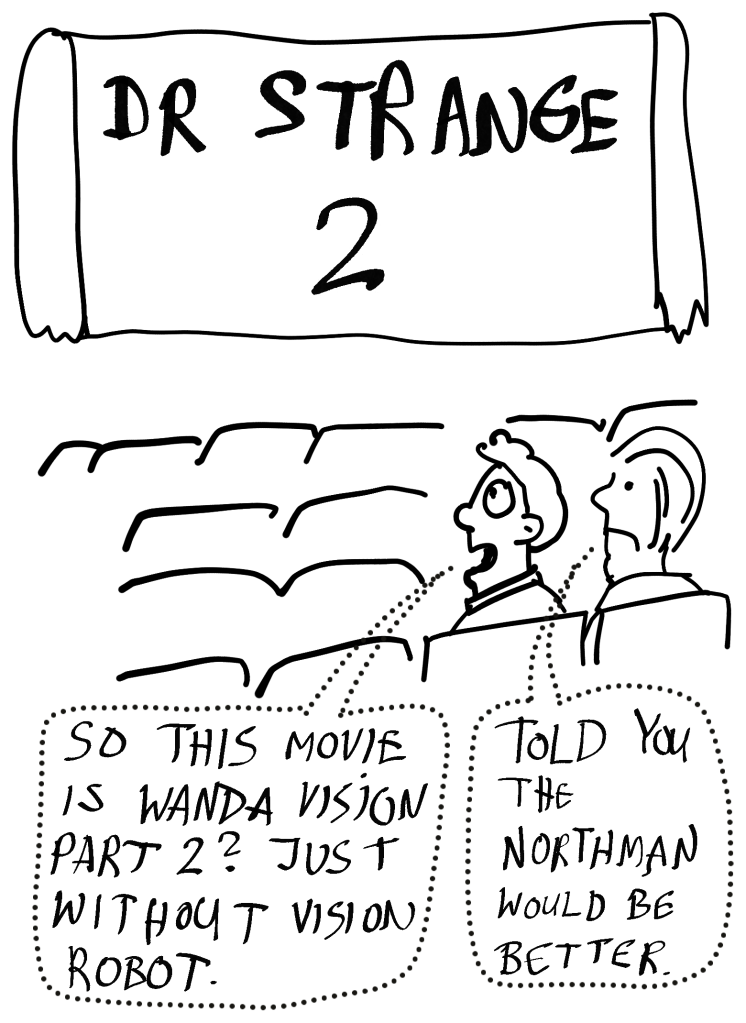 DR STRANGE
2
SO THIS MOVIE
IS WANDA VISION
PART 2? JUST
WITHOUT VISION
ROBOT.
TOLD YOU
THE
NORTHMAN
WOULD BE
BETTER.